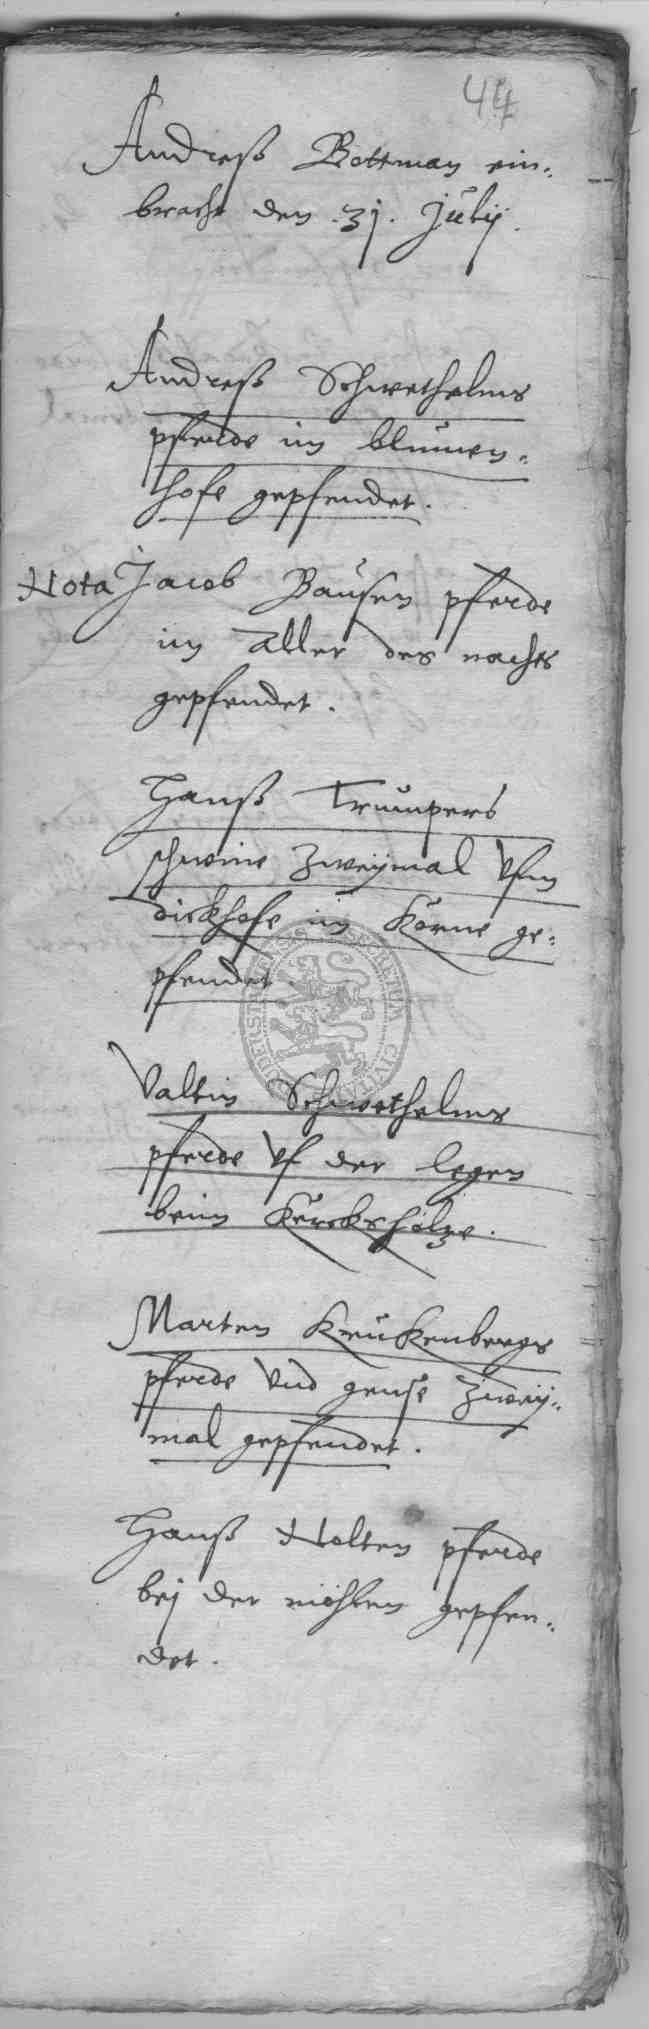 44
Andreß Bottman ein-
bracht den .31. Julij.
Andreß Schwethelms
pferde im blumen-
hofe gepfendet.
Nota Jacob Bausen pferde
im Aller des nachts
gepfendet.
Hanß Trumpers
schweine zweymal Vfm
dickhofe im Korne ge-
pfendet.
Valtin Schwethelms
pferde Vf der legen
beim Kerckholze.
Marten Kruckenbergs
pferde Vnd gense zwey-
mal gepfendet.
Hanß Nolten pferde
bej der möhlen gepfen-
det.